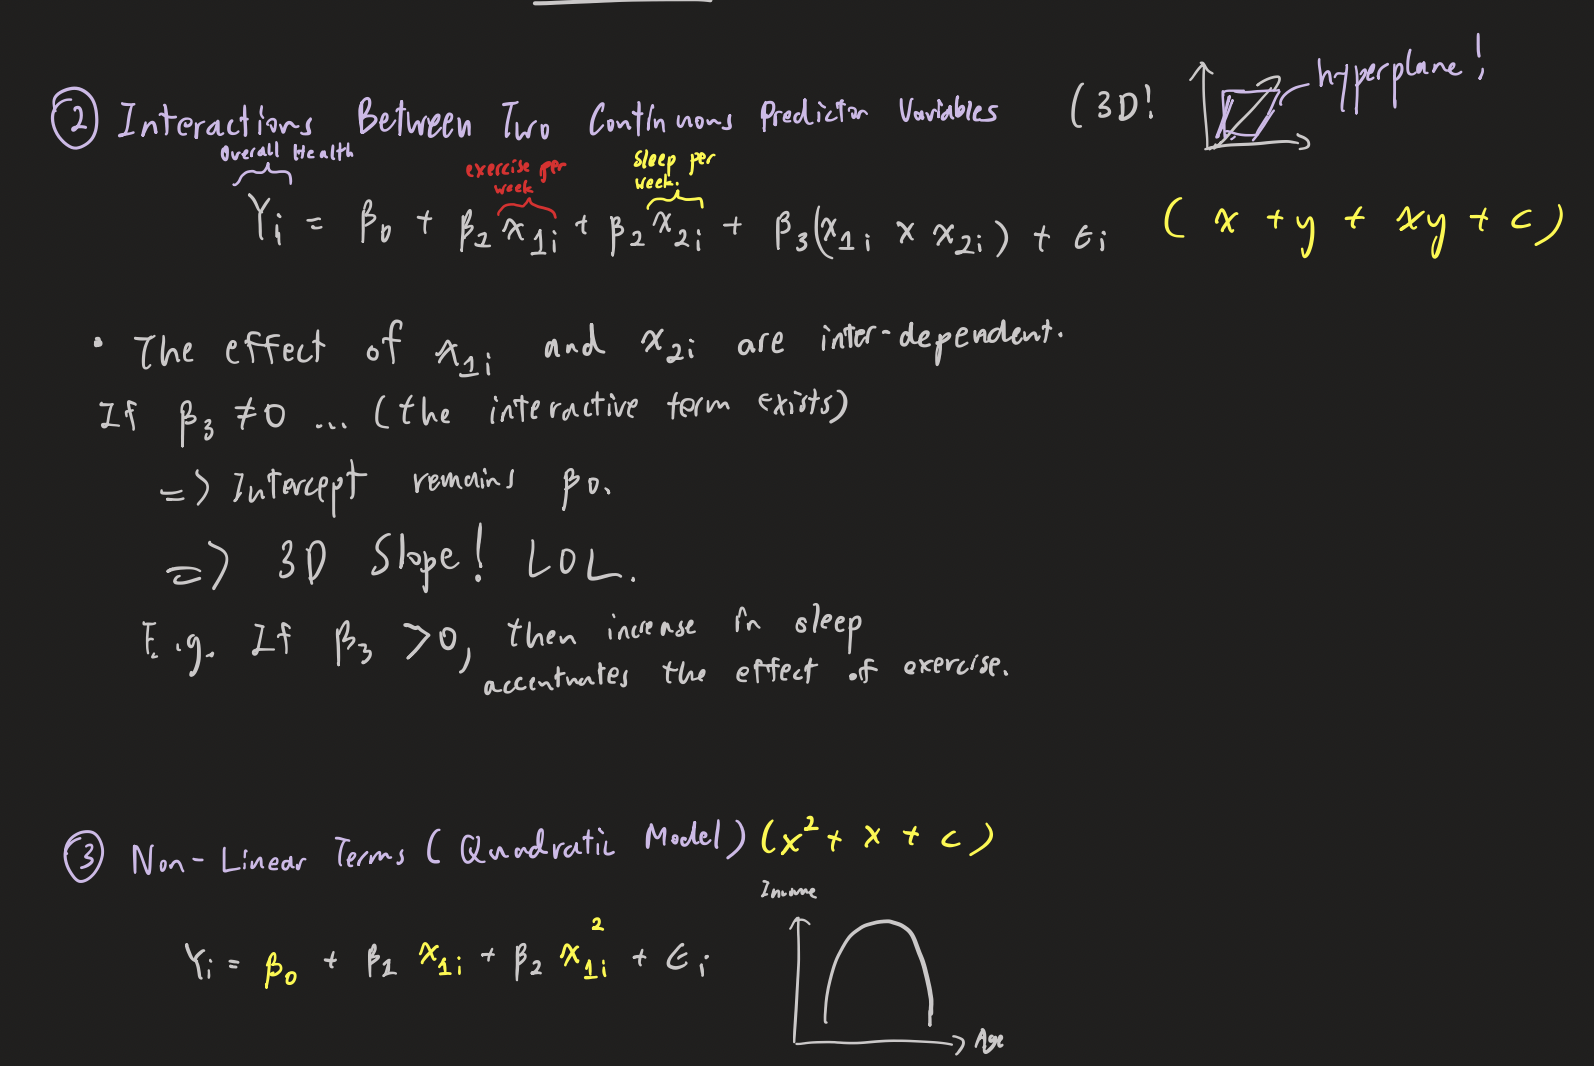 ② Interactions Between Two Continuous Predictor Variables (3D! hyperplane!
Overall Health
exercise per week
sleep per week.
Yi = β0 + β2 x1i + β2 x2i + β3(x1i × x2i) + ϵi (x + y + xy + c)
• The effect of x1i and x2i are inter-dependent.
If β3 ≠ 0 ... (the interactive term exists)
=> Intercept remains β0.
=> 3D Slope! LOL.
E.g. If β3 > 0, then increase in sleep
accentuates the effect of exercise.
③ Non-Linear Terms (Quadratic Model) (x² + x + c)
Income
Yi = β0 + β1 x1i + β2 x1i² + ϵi
Age